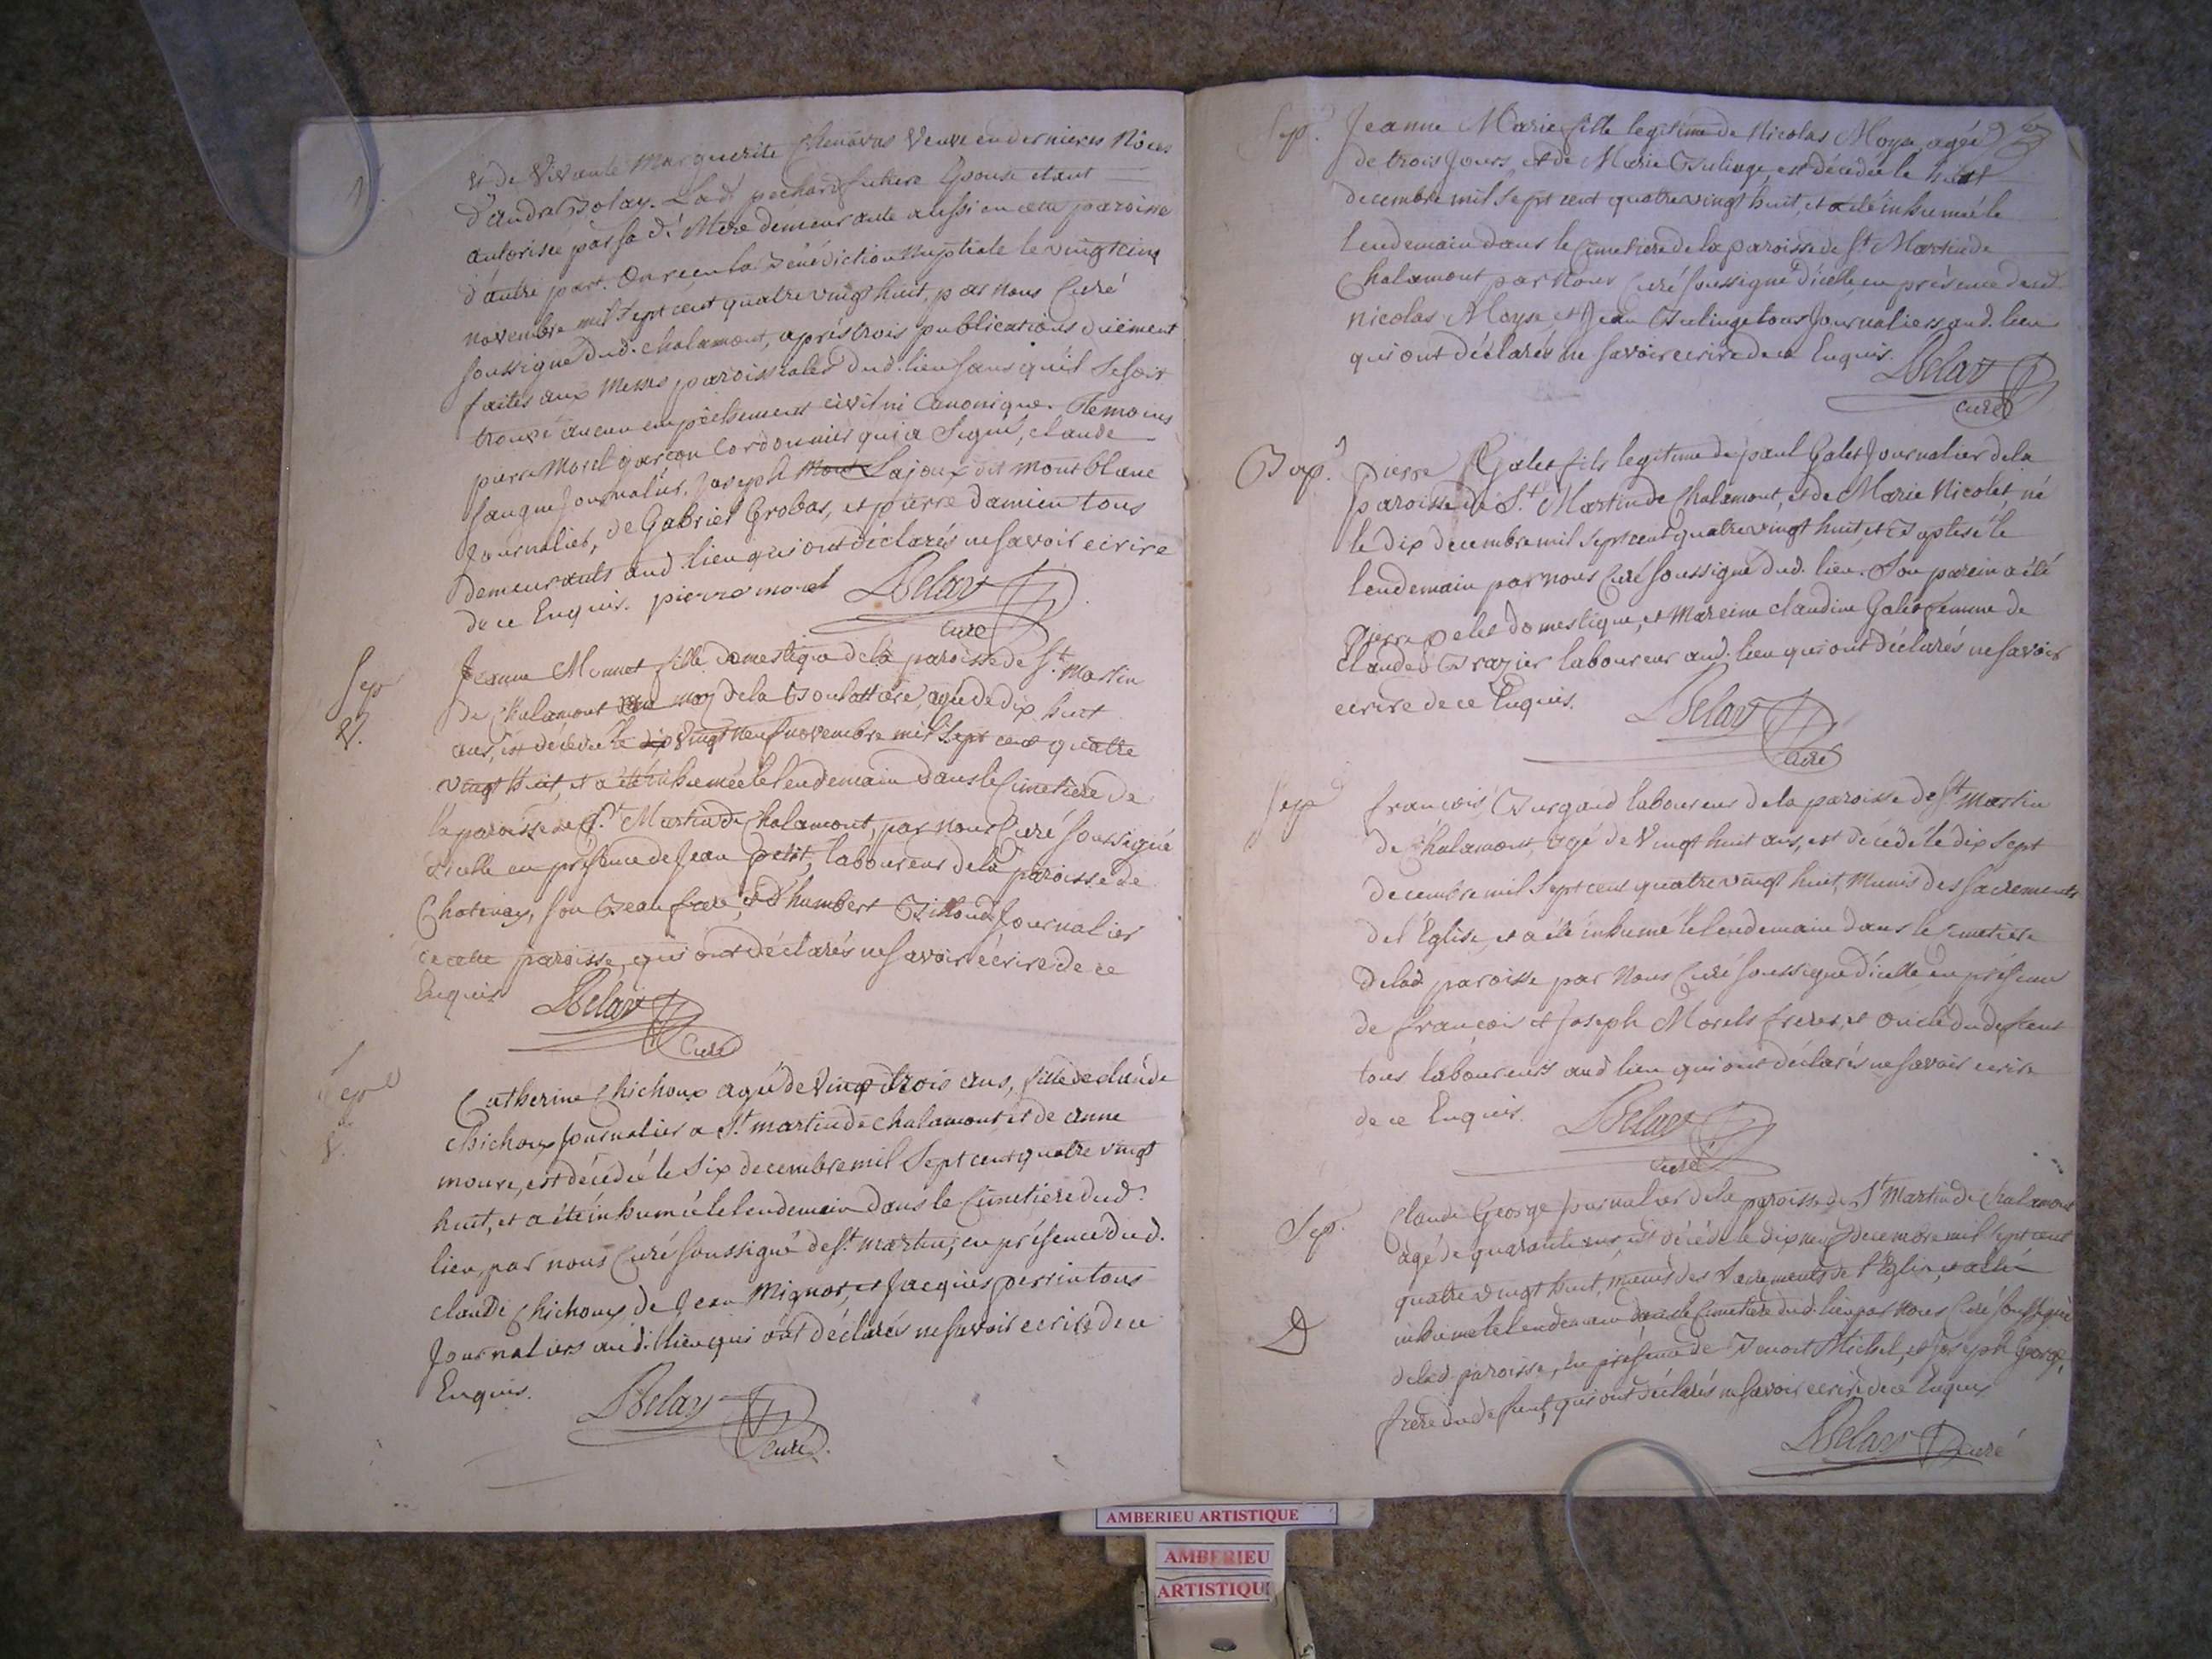 et de Vivante Marguerite Chenavas Veuve en dernieres Noces
d'andré Bolay. Lad. pechard future Epouse etant
autorisée par sa de. Mere demeurante aussi en cette paroisse
d'autre part. On reçu la Bénédiction Nuptiale le vingt cinq
novembre mil sept cent quatre vingt huit, par nous Curé
soussigné dud. chalamont, après trois publications duëment
faites aux Messes paroissiales dud. lieu sans qu'il se soit
trouvé aucun empêchement civil ni Canonique. Temoins
pierre Morel garçon Cordonnier qui a signé, claude
sauque Journalier, Joseph Lajoux dit montblanc
Journalier, de Gabriel Grobas, et pierre damien tous
demeurants aud. lieu qui ont déclarés ne savoir ecrire
de ce Enquis. pierre morel Delay
curé
Sep
Jeanne Monnet fille domestique de la paroisse de St. Martin
de Chalamont de la Boulattiere, agée de dix huit
ans, est décédée le vingt neuf novembre mil sept cent quatre
vingt huit, et a été inhumée le lendemain dans le Cimetiere de
la paroisse de St. Martin de Chalamont, par nous Curé soussigné
d'icelle en présence de Jean petit, laboureur de la paroisse de
Chatenay, son Beau frere, et d'humbert Journalier
de cette paroisse, qui ont déclarés ne savoir écrire de ce
Enquis Delay
Curé
Sep
Catherine Chichoux agée de vingt trois ans, fille de claude
Chichoux Journalier a St. martin de chalamont et de anne
moure, est décédée le six decembre mil sept cent quatre vingt
huit, et a été inhumée le lendemain dans le Cimetiere dud.
lieu, par nous Curé soussigné de St. martin, en présence dud.
claude Chichoux de Jean Mignot, et Jacques perrin tous
Journaliers aud. lieu qui ont déclarés ne savoir ecrire de ce
Enquis.
Delay
curé
Sep.
Jeanne Marie fille legitime de Nicolas Moyse, agée
de trois Jours et de Marie Bulinge, est décédée le huit
decembre mil sept cent quatre vingt huit, et a été inhumée le
lendemain dans le Cimetiere de la paroisse de St. Martin de
Chalamont par Nous Curé soussigné d'icelle, en présence dud.
nicolas Moyse, et Jean Bulinge tous Journaliers aud. lieu
qui ont déclarés ne savoir ecrire de ce Enquis. Delay
curé
Bap.
pierre Galet fils legitime de paul Galet Journalier de la
paroisse de St. Martin de Chalamont, et de Marie Nicolet, né
le dix decembre mil sept cent quatre vingt huit, et Baptisé le
lendemain par nous Curé soussigné dud. lieu. Son parein a été
pierre pelet domestique, et Mareine claudine Galet femme de
Claude Brazier laboureur aud. lieu qui ont déclarés ne savoir
ecrire de ce Enquis. Delay
Curé
Sep
françois Burgaud laboureur de la paroisse de St. Martin
de Chalamont, agé de Vingt huit ans, est décédé le dix sept
decembre mil sept cent quatre vingt huit, Munis des sacrements
de l'Eglise, et a été inhumé le lendemain dans le Cimetiere
de lad. paroisse par Nous Curé soussigné d'icelle, en présence
de françois et Joseph Morels freres, et oncle du defunt
tous laboureurs aud. lieu qui ont déclarés ne savoir ecrire
de ce Enquis. Delay
curé
Sep.
Claude George Journalier de la paroisse de St. Martin de Chalamont
agé de quarante ans est décédé le dix neuf decembre mil sept cent
quatre vingt huit, munis des Sacrements de l'Eglise, et a été
inhumé le lendemain dans le Cimetiere dud. lieu par Nous Curé soussigné
de lad. paroisse, en présence de Benoit Michel, et Joseph George,
frere du defunt, qui ont déclarés ne savoir ecrire de ce Enquis
Delay curé
AMBERIEU ARTISTIQUE
AMBERIEU
ARTISTIQUE